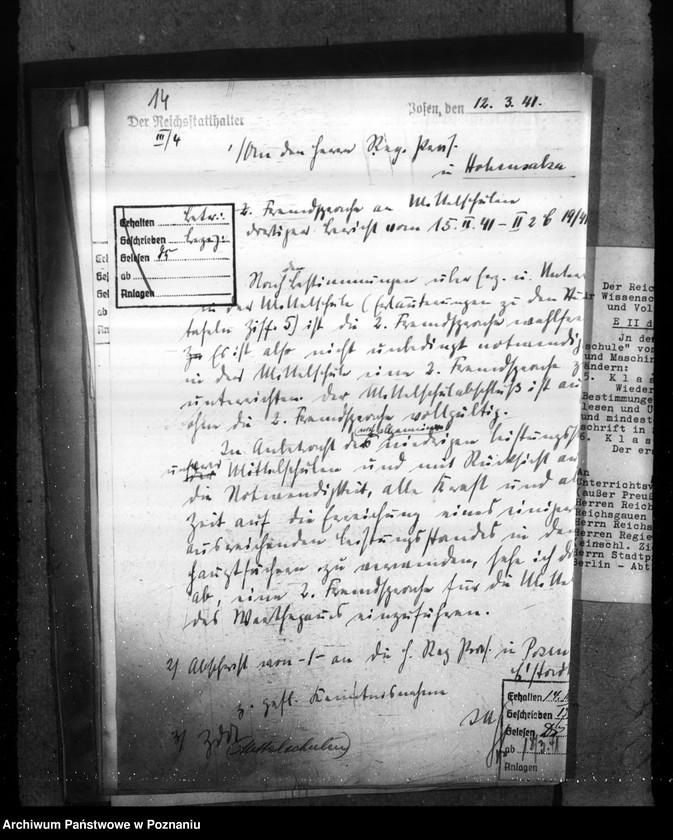 14
Der Reichsstatthalter
III/4
Posen, den 12. 3. 41.
1/ An den Herrn Reg. Präs.
in Hohensalza
Betr.: 2. Fremdsprache an Mittelschulen
Bezg.: dortiger Bericht vom 15. II. 41 – II 2 b 19/41
Erhalten
Geschrieben
Gelesen
ab
Anlagen
Nach den Bestimmungen über Erz. u. Unter
in der Mittelschule (Erläuterungen zu den Stun
tafeln Ziff. 5) ist die 2. Fremdsprache wahlfrei
Es ist also nicht unbedingt notwendig
in der Mittelschule eine 2. Fremdsprache z
unterrichten. Der Mittelschulabschluß ist au
ohne die 2. Fremdsprache vollgültig.
In Anbetracht des niedrigen Leistungss
unserer Mittelschulen und mit Rücksicht au
die Notwendigkeit, alle Kraft und al
Zeit auf die Erreichung eines einiger
ausreichenden Leistungsstandes in den
Hauptfächern zu verwenden, sehe ich da
ab, eine 2. Fremdsprache für die Mittel
des Warthegaus einzuführen.
2/ Abschrift von -1- an die H. Reg Präs. in Posen
z. gefl. Kenntnisnahme
3/ ZdA (Mittelschulen)
Erhalten 14.
Geschrieben 17
Gelesen
ab
Anlagen
Der Reic
r Wissensc
und Vol
E II d
Jn de
schule" vo
und Maschin
ändern:
5. K l a s
Wieder
Bestimmunge
lesen und U
und mindest
schrift in
6. K l a s
Der ers
An
Unterrichtsv
(außer Preuß
Herren Reich
Reichsgauen
Herrn Reichs
Herren Regie
einschl. Zi
Herrn Stadtp
Berlin - Abt
Archiwum Państwowe w Poznaniu